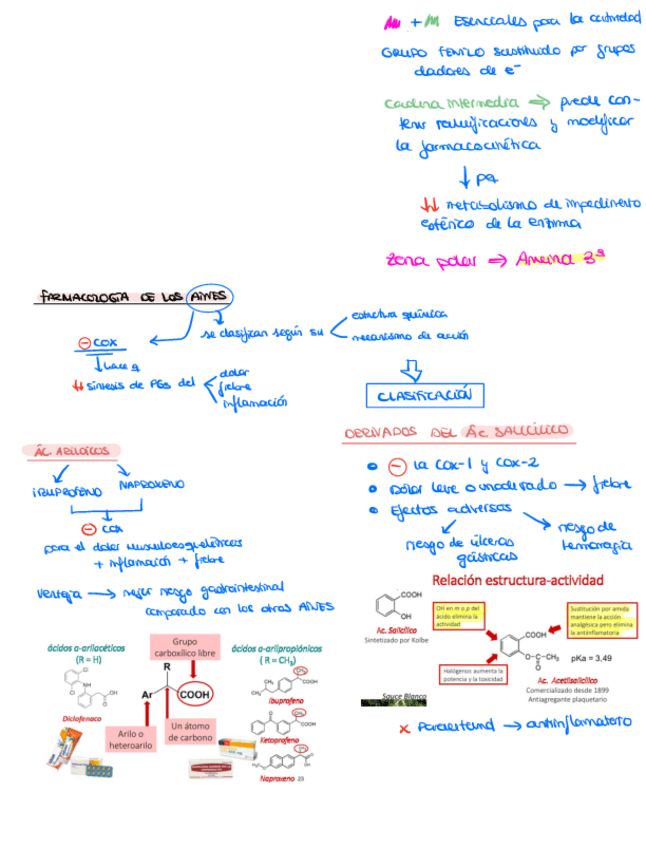 + Esenciales para la actividad
GRUPO FENILO sustituido por grupos
dadores de e⁻
Cadena intermedia ⇒ puede con-
tener ramificaciones y modificar
la farmacocinética
↓ pq
↓↓ metabolismo de impedimento
estérico de la enzima
Zona polar ⇒ Amina 3ª
FARMACOLOGÍA DE LOS AINES
se clasifican según su
estructura química
mecanismo de acción
⊖ COX
↓ hace q
↓↓ síntesis de PGs del
dolor
fiebre
inflamación
CLASIFICACIÓN
ÁC. ARILOICOS
IBUPROFENO NAPROXENO
⊖ COX
para el dolor musculoesquelético
+ inflamación + fiebre
Ventaja → mejor riesgo gastrointestinal
comparado con los otros AINES
DERIVADOS DEL ÁC SALICÍLICO
⊖ la COX-1 y COX-2
Dolor leve o moderado → fiebre
Efectos adversos
riesgo de úlceras
gástricas
riesgo de
hemorragia
ácidos α-arilacéticos
(R = H)
Diclofenaco
Grupo
carboxílico libre
R
Ar
COOH
Arilo o
heteroarilo
Un átomo
de carbono
ácidos α-arilpropiónicos
( R = CH₃)
Ibuprofeno
Ketoprofeno
Naproxeno 23
Relación estructura-actividad
COOH
OH
Ac. Salicílico
Sintetizado por Kolbe
Sauce Blanco
OH en m o p del
ácido elimina la
actividad
Sustitución por amida
mantiene la acción
analgésica pero elimina
la antiinflamatoria
COOH
O-C-CH₃
O
pKa = 3,49
Halógenos aumenta la
potencia y la toxicidad
Ac. Acetilsalicílico
Comercializado desde 1899
Antiagregante plaquetario
x Paracetamol → antiinflamatorio